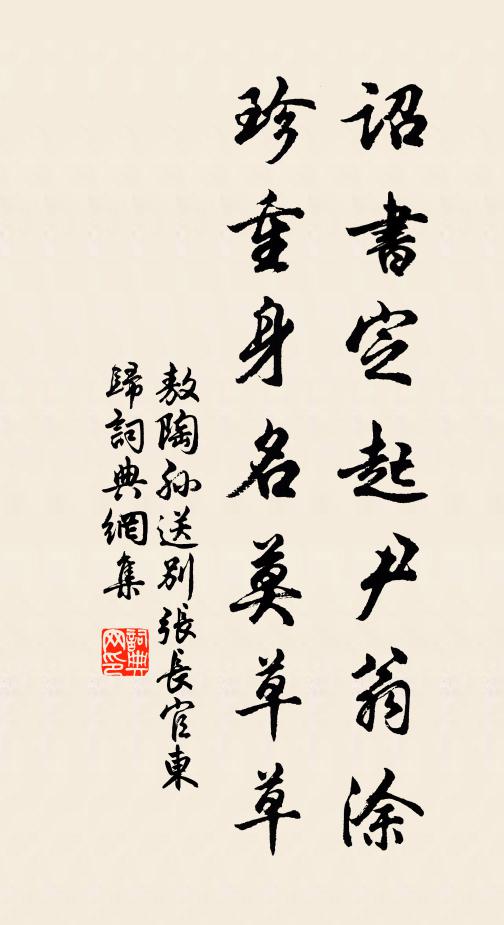 詔書定起尹翁涂
珍重身名莫草草
敖陶孫送別張長官東
歸詞典網集
詞典網印